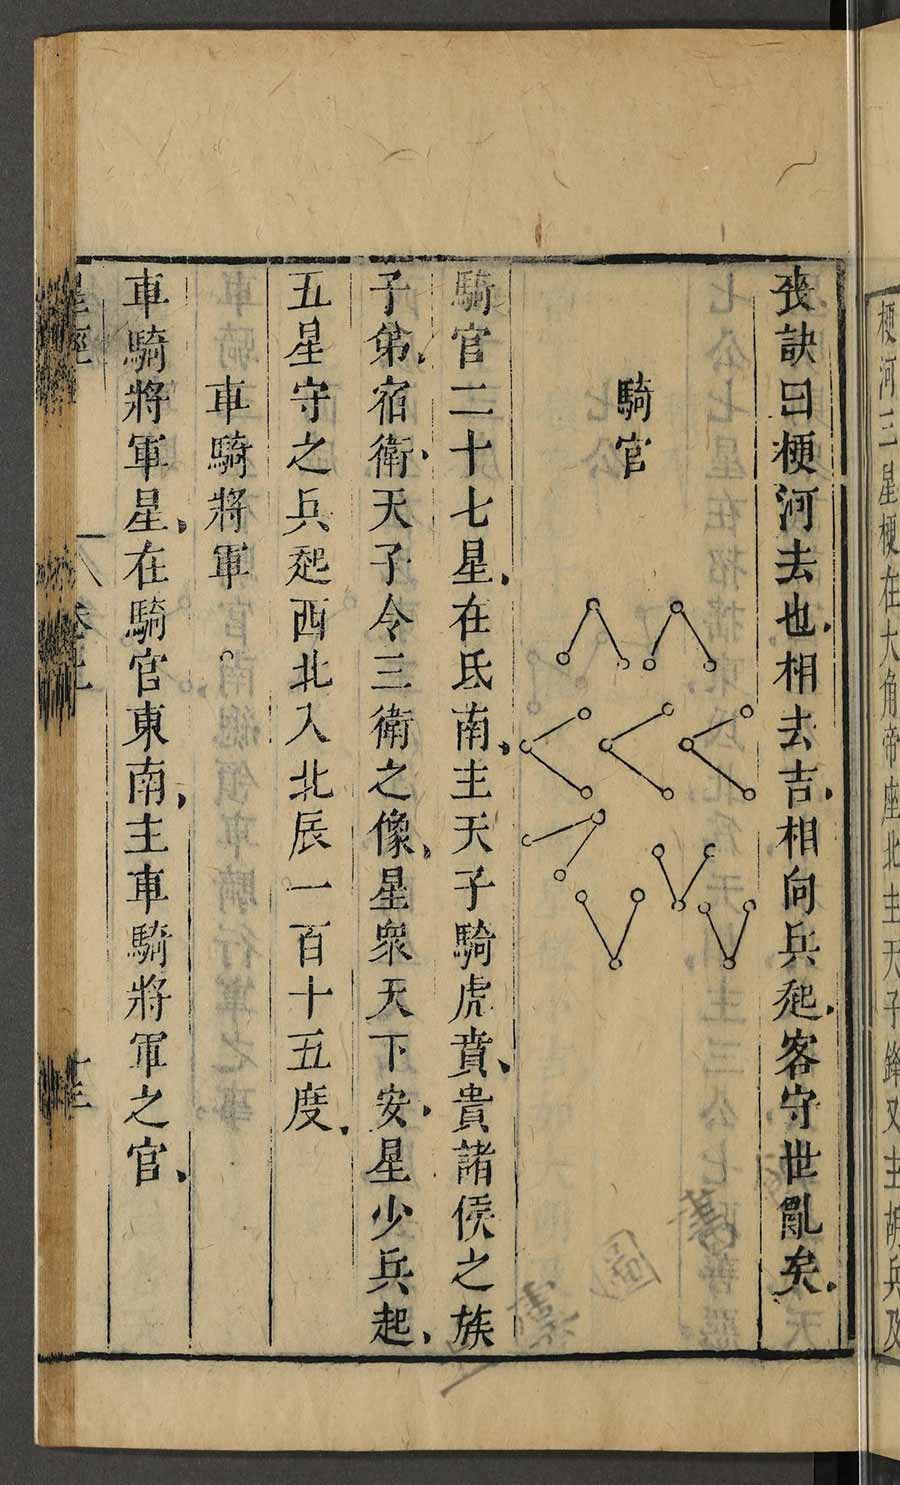 梗河三星梗在大角帝座北主天子鋒又主胡兵及
喪訣曰梗河去也相去吉相向兵起客守世亂矣
騎官
騎官二十七星在氐南主天子騎虎賁貴諸侯之族
子弟宿衛天子令三衛之像星衆天下安星少兵起
五星守之兵起西北入北辰一百十五度
車騎將軍
車騎將軍星在騎官東南主車騎將軍之官
星經